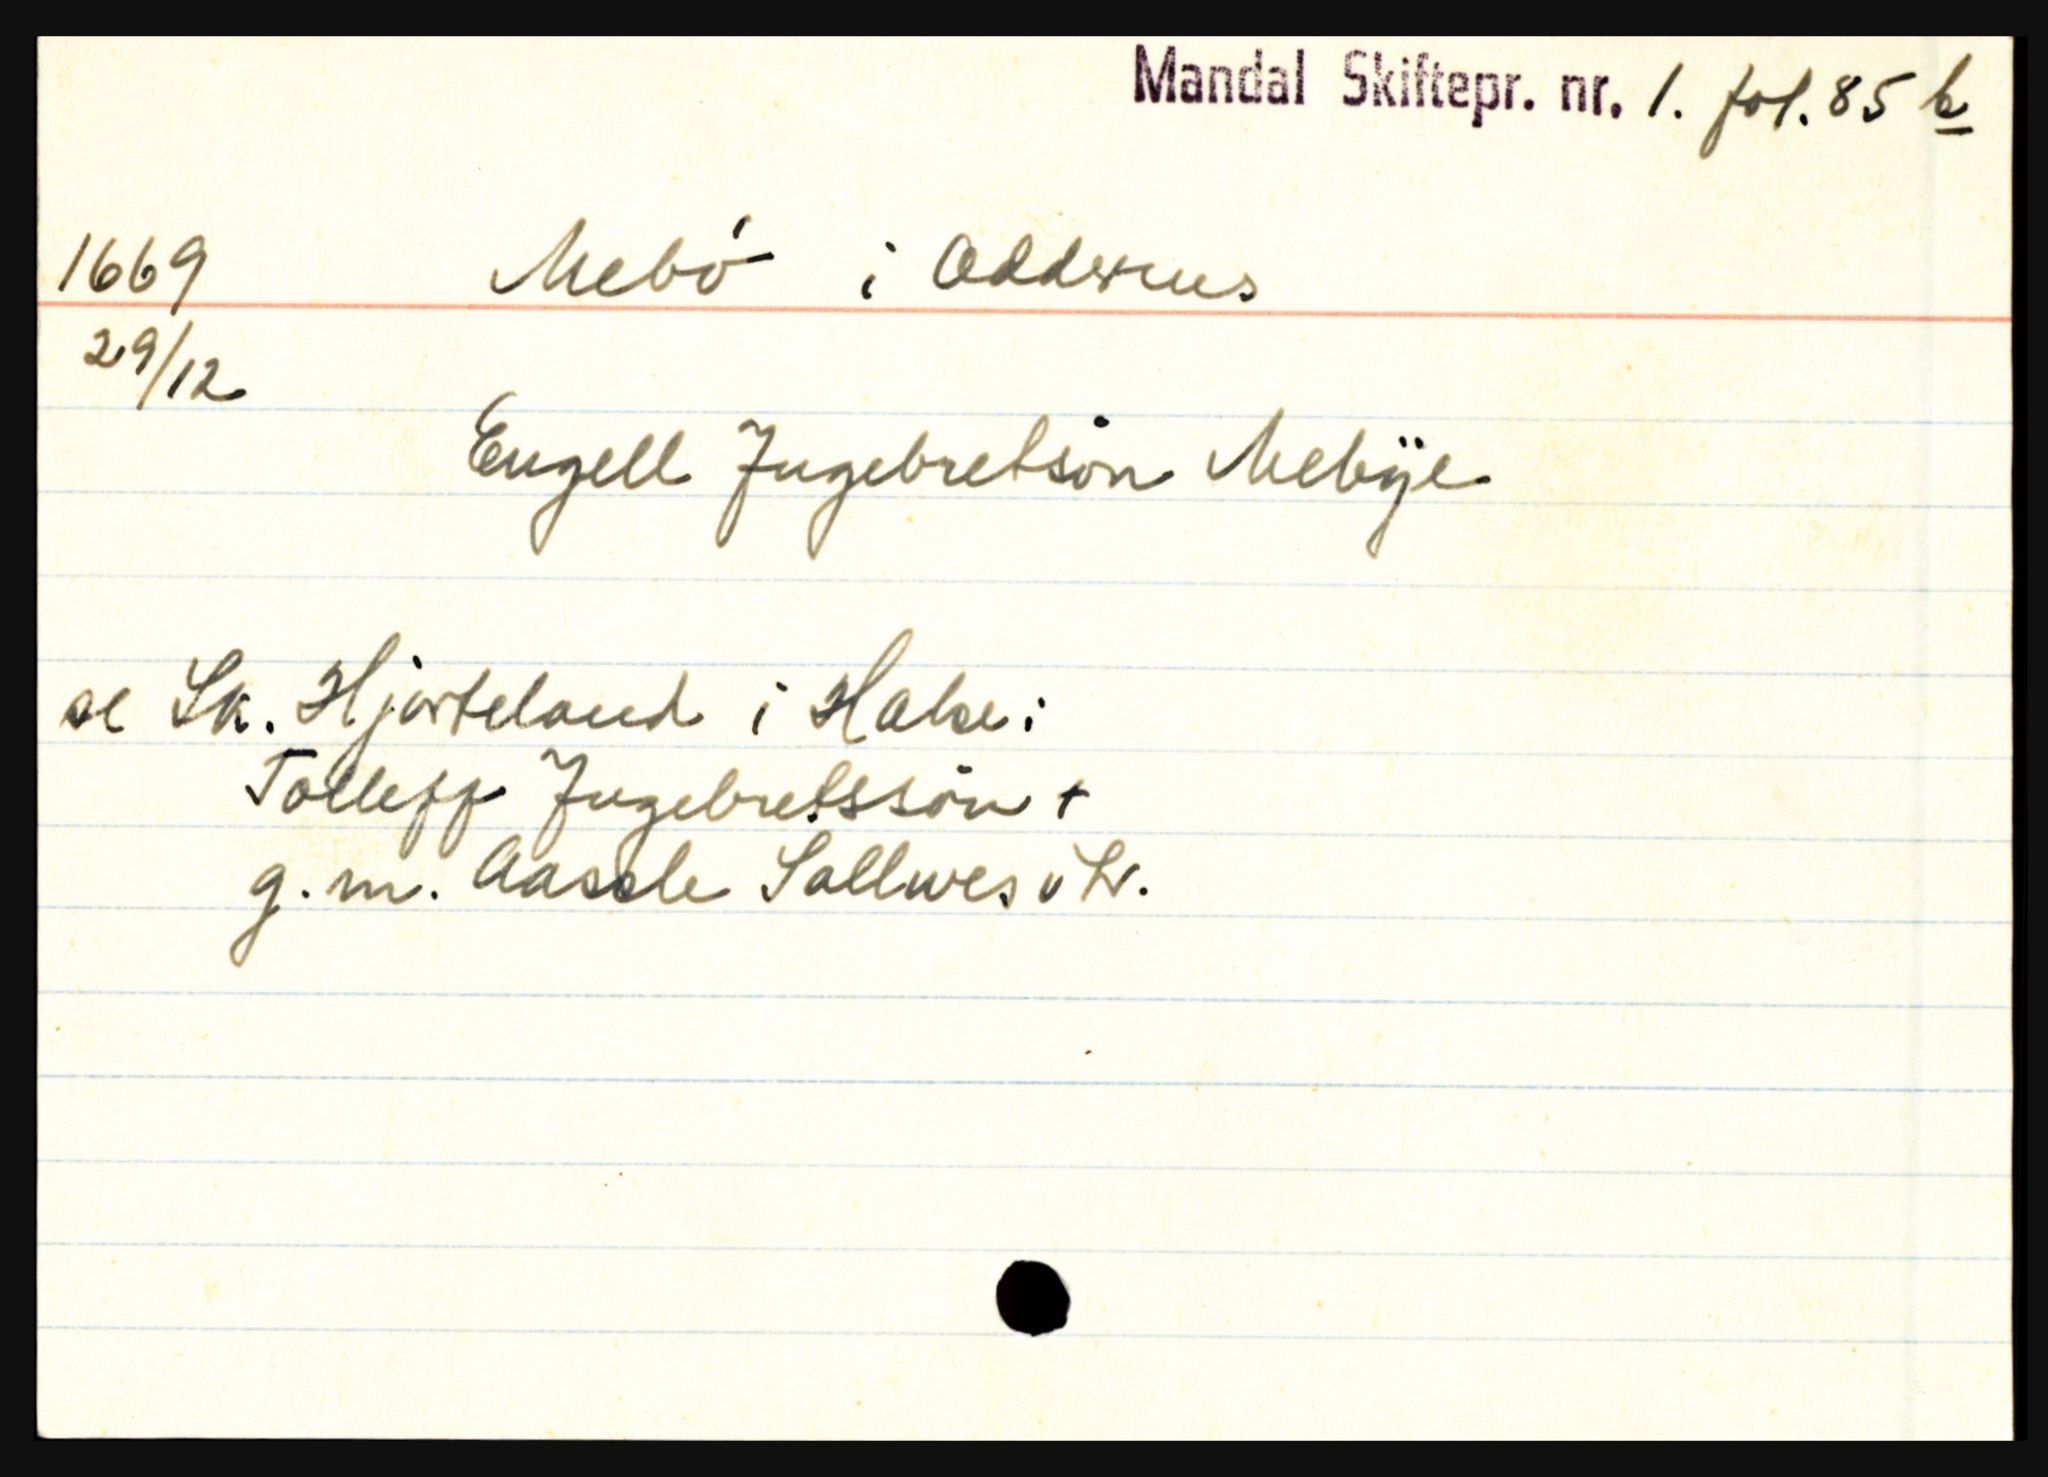 Mandal Skiftepr. nr. 1. fol. 85 b
1669 Mebö i Oddernes
29/12
Engell Ingebretsön Mebÿe
se Sk. Hjorteland i Halse:
Tolleff Ingebretssön +
g. m. Aassle Sallwesdtr.